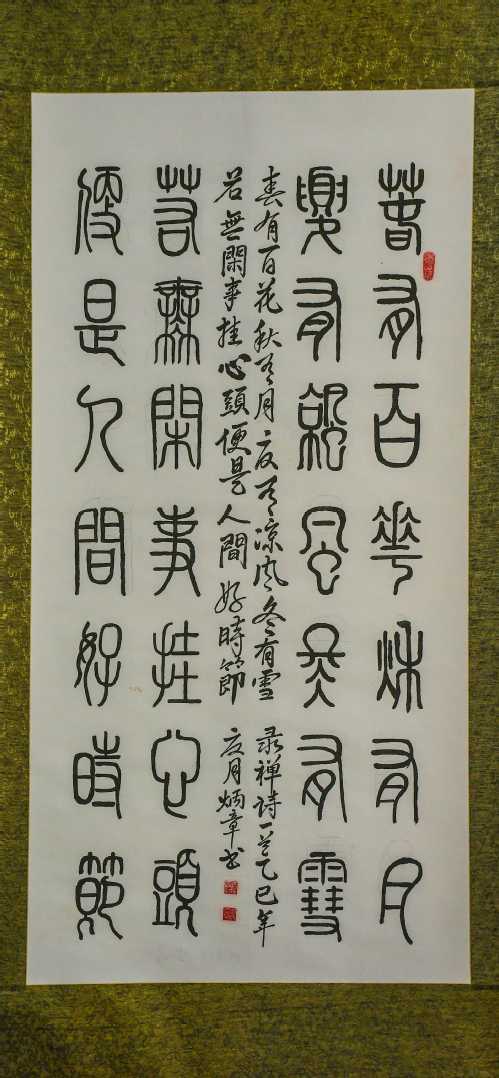 春有百花秋有月
夏有凉風冬有雪
春有百花秋有月夏有凉风冬有雪 录禅詩一首乙巳年
若無閑事挂心頭便是人間好時節 夏月炳章书
若無閑事挂心頭
便是人間好時節